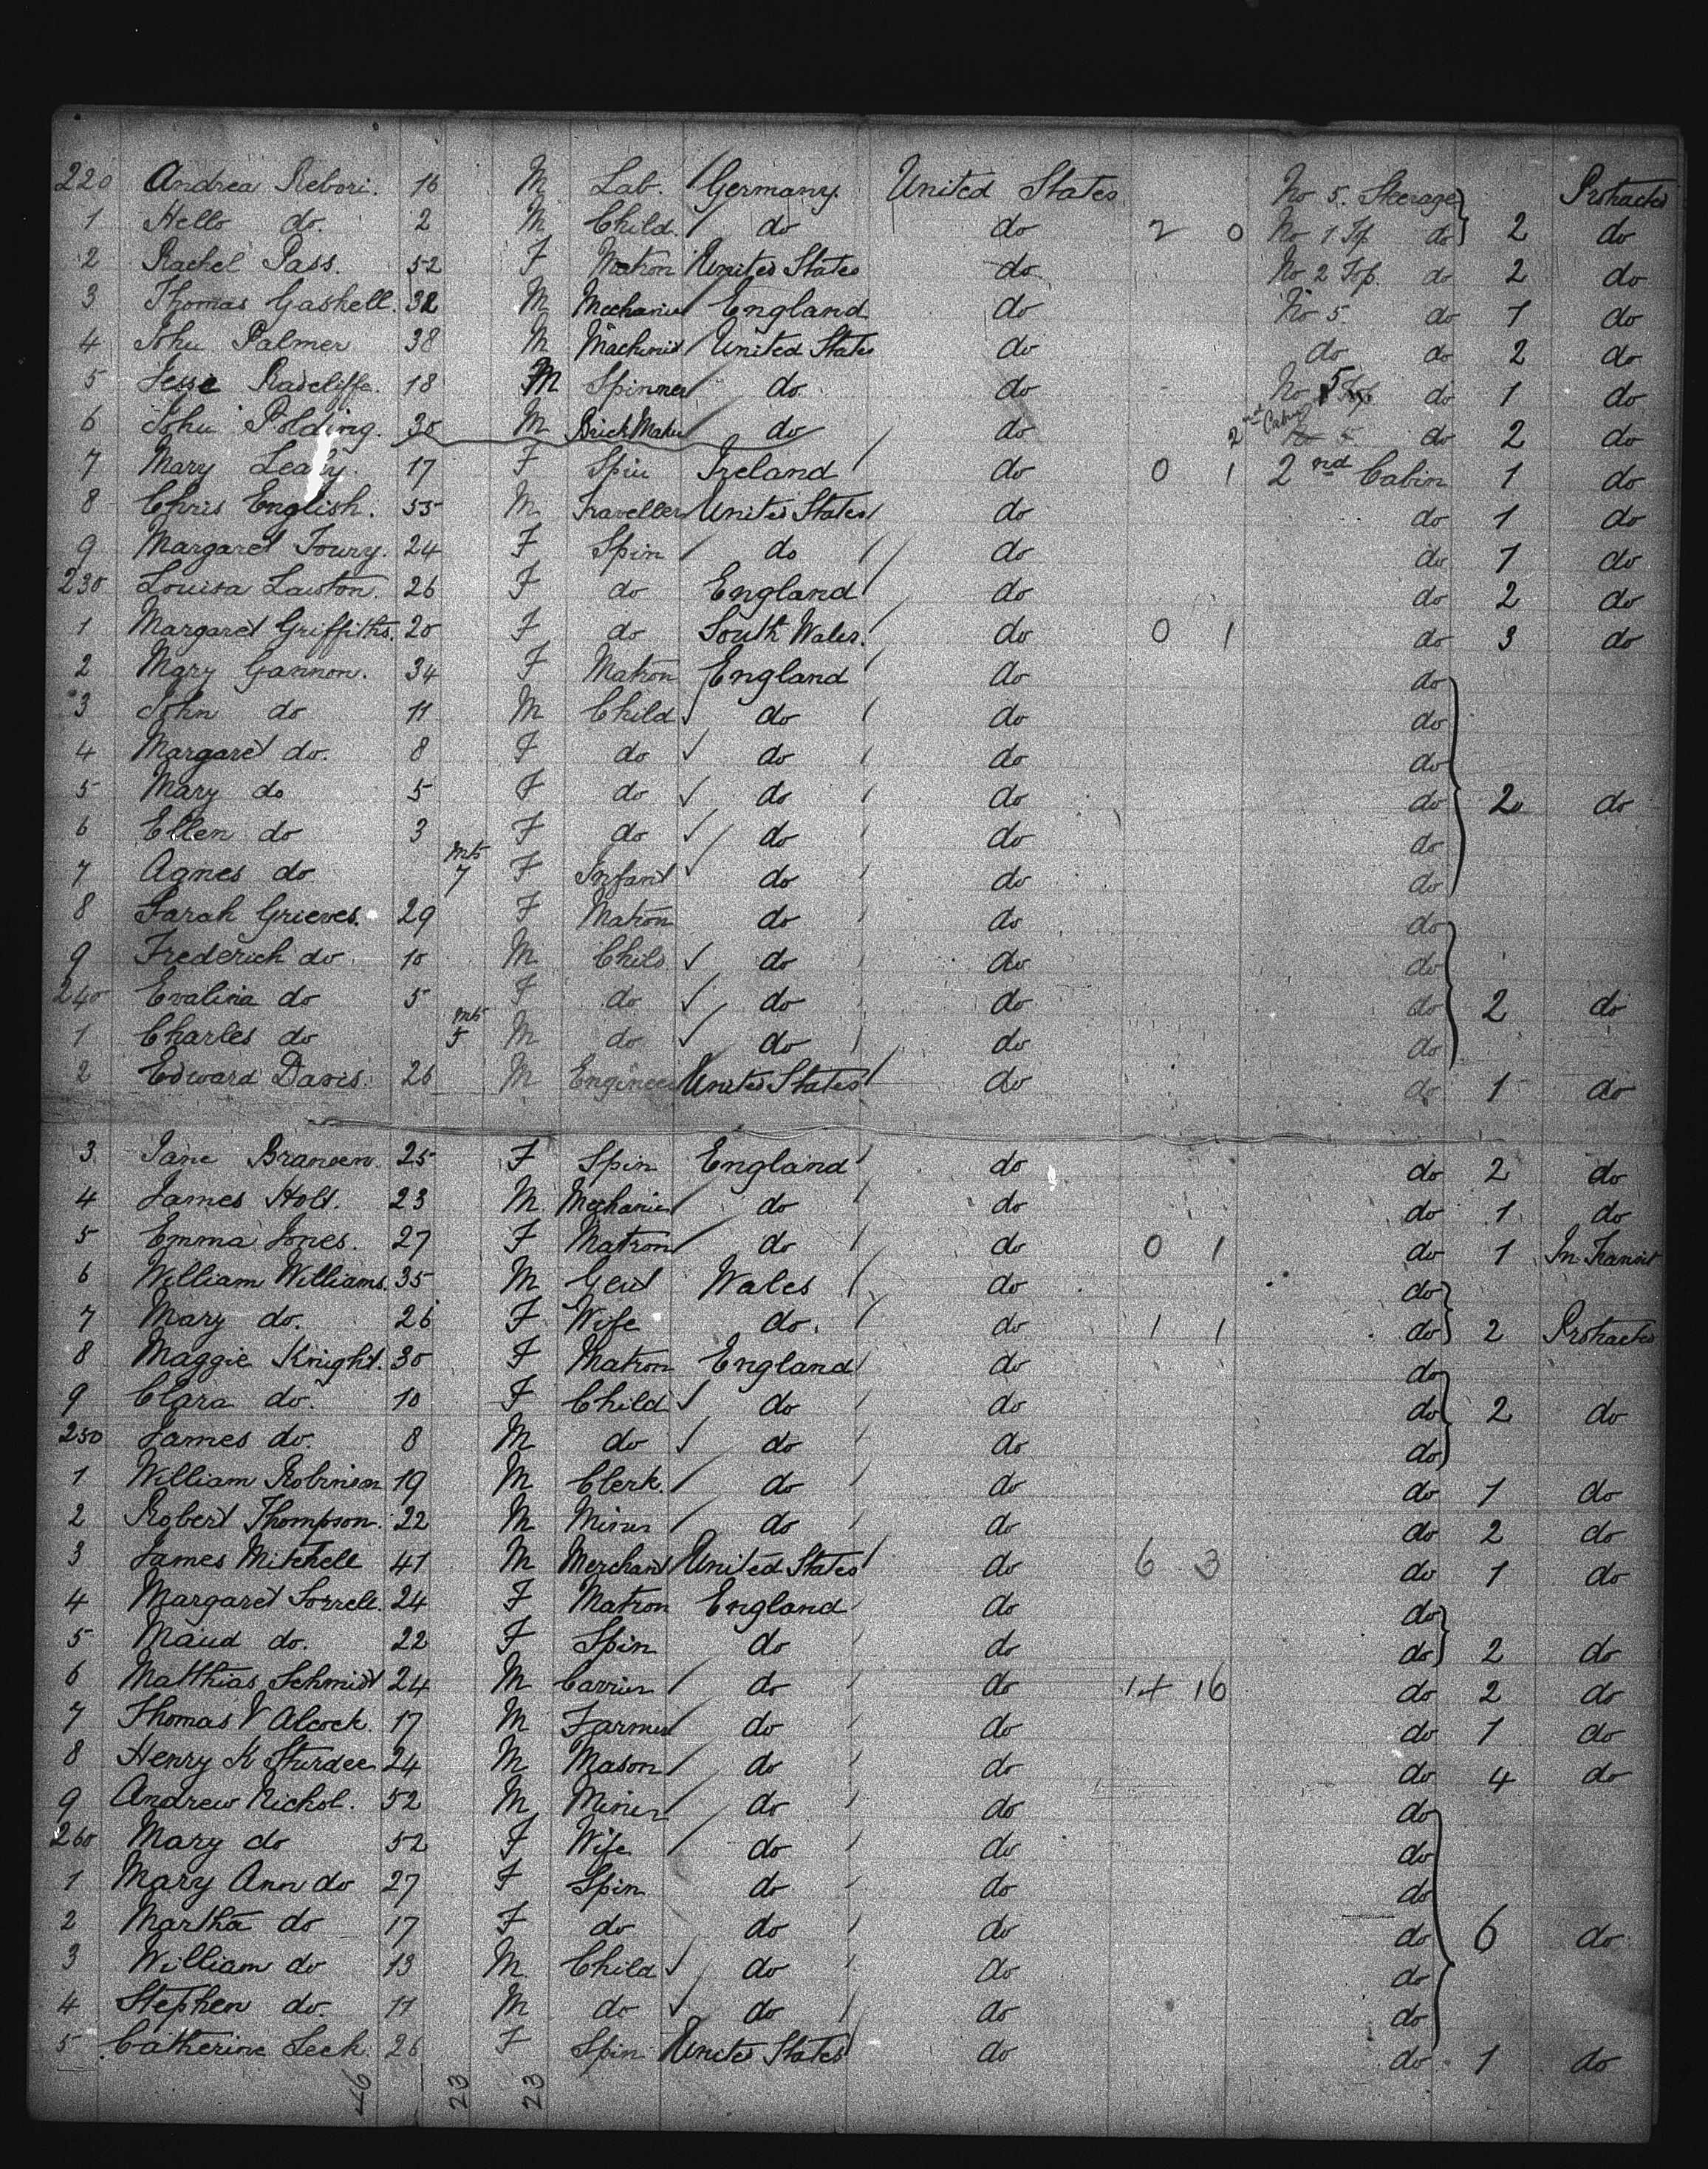 220 Andrea Rebori. 16 M Lab. Germany. United States No 5. Steerage Protracted
1 Hello do. 2 M Child. do do 2 0 No 1 Top do 2 do
2 Rachel Pass. 52 F Matron United States do No 2 Top. do 2 do
3 Thomas Gaskell. 32 M Mechanic England do No 5 do 1 do
4 John Palmer 38 M Machinist United States do do do 2 do
5 Jesse Radcliffe. 18 M Spinner do do No 5 do 1 do
6 John Polding. 30 M Brick Maker do do 2nd Cabin do 2 do
7 Mary Leahy. 17 F Spin Ireland do 0 1 2nd Cabin 1 do
8 Chris English. 55 M Traveller United States do do 1 do
9 Margaret Toury. 24 F Spin do do do 1 do
230 Louisa Lawton. 26 F do England do do 2 do
1 Margaret Griffiths. 20 F do South Wales. do 0 1 do 3 do
2 Mary Gannon. 34 F Matron England do do
3 John do 11 M Child do do do
4 Margaret do. 8 F do do do do
5 Mary do 5 F do do do do 2 do
6 Ellen do 3 F do do do do
7 Agnes do mts 7 F Infant do do do
8 Sarah Grieves. 29 F Matron do do do
9 Frederich do. 10 M Child do do do
240 Evalina do 5 F do do do do 2 do
1 Charles do mts 5 M do do do do
2 Edward Davis. 26 M Engineer United States do do 1 do
3 Jane Branden. 25 F Spin England do do 2 do
4 James Holt. 23 M Mechanic do do do 1 do
5 Emma Jones. 27 F Matron do do 0 1 do 1 In Transit
6 William Williams. 35 M Gent Wales do do
7 Mary do. 26 F Wife do. do 1 1 do 2 Protracted
8 Maggie Knight. 30 F Matron England do do
9 Clara do. 10 F Child do do do 2 do
250 James do. 8 M do do do do
1 William Robinson 19 M Clerk. do do do 1 do
2 Robert Thompson. 22 M Miner do do do 2 do
3 James Mitchell 41 M Merchant United States do 6 3 do 1 do
4 Margaret Sorrell. 24 F Matron England do do
5 Maud do. 22 F Spin do do do 2 do
6 Matthias Schmidt 24 M Carrier do do 14 16 do 2 do
7 Thomas V Alcock. 17 M Farmer do do do 1 do
8 Henry K Sturdee 24 M Mason do do do 4 do
9 Andrew Nichol. 52 M Miner do do do
260 Mary do 52 F Wife do do do
1 Mary Ann do 27 F Spin do do do
2 Martha do 17 F do do do do 6 do
3 William do 13 M Child do do do
4 Stephen do. 11 M do do do do
5 Catherine Leek. 26 F Spin United States do do 1 do
46 23 23